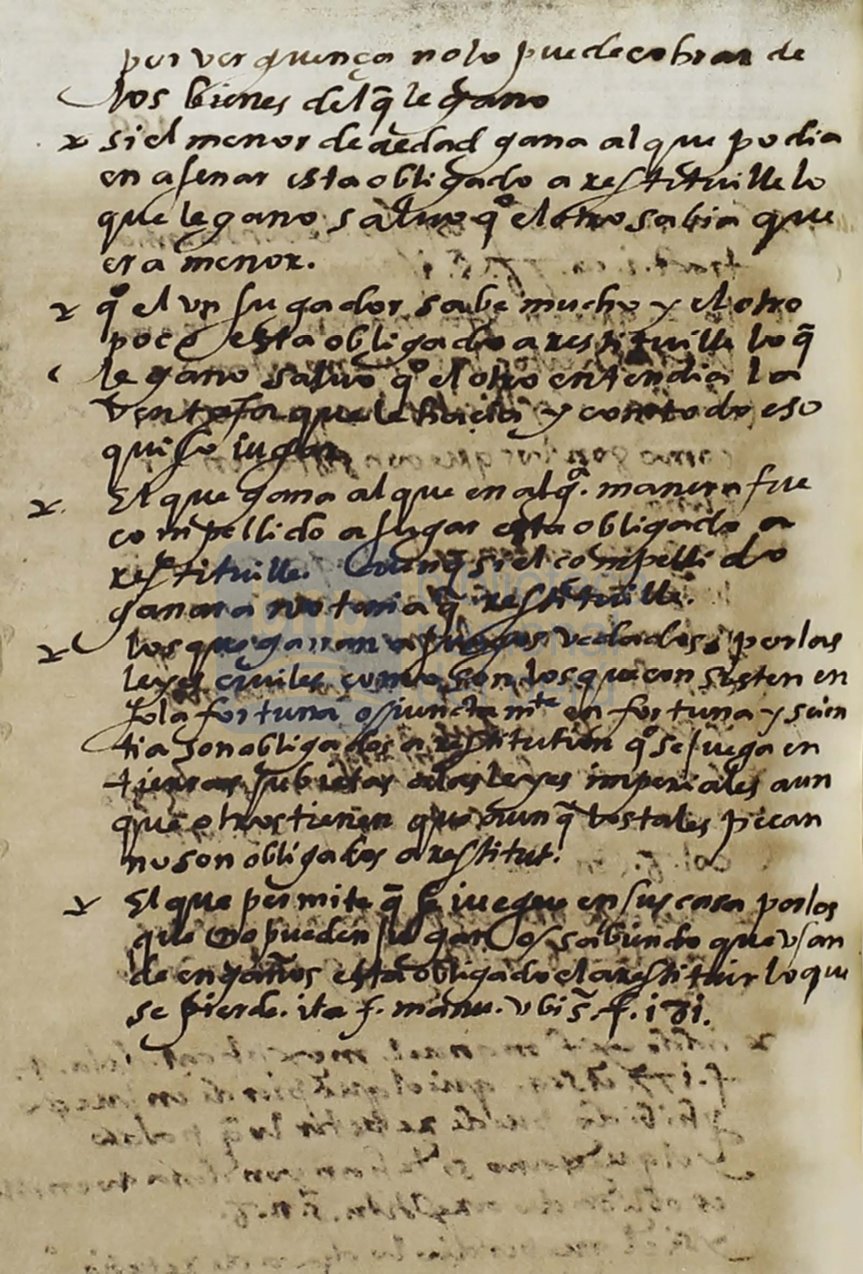 por verguença no lo puede cobrar de
los bienes del q̄ le gano
x si el menor de aedad gana al que podia
enaJenar esta obligado a restituille lo
que le gano saluo qº el otro sabia que
era menor.
x qº el vn Jugador sabe mucho y el otro
poco esta obligado a restituille lo q̄
le gano saluo qº el otro entendia la
ventaJa que le hacia y con todo eso
quiso iugar
x. El que gana al que en alqª. manera fue
compellido a Jugar esta obligado a
restituille. aunq̄ si el compellido
ganara no tenia q̄ restituille.
x los que ganan a Juegos vedados por las
leyes ciuiles como son los que consisten en
sola fortuna o Juuctamte en fortuna y scien
tia son obligados a restitution qº se Juega en
tierras subietas a las leyes imperiales aun
que otros tienen que aunq̄ los tales pecan
no son obligados a restitut.
x El que permite q̄ se iuegue en su casa por los
que no pueden Jugar o sabiendo que vsan
de engaños esta obligado el a restituir lo que
se pierde. ita f. manu. vbi s̄. f. 171.